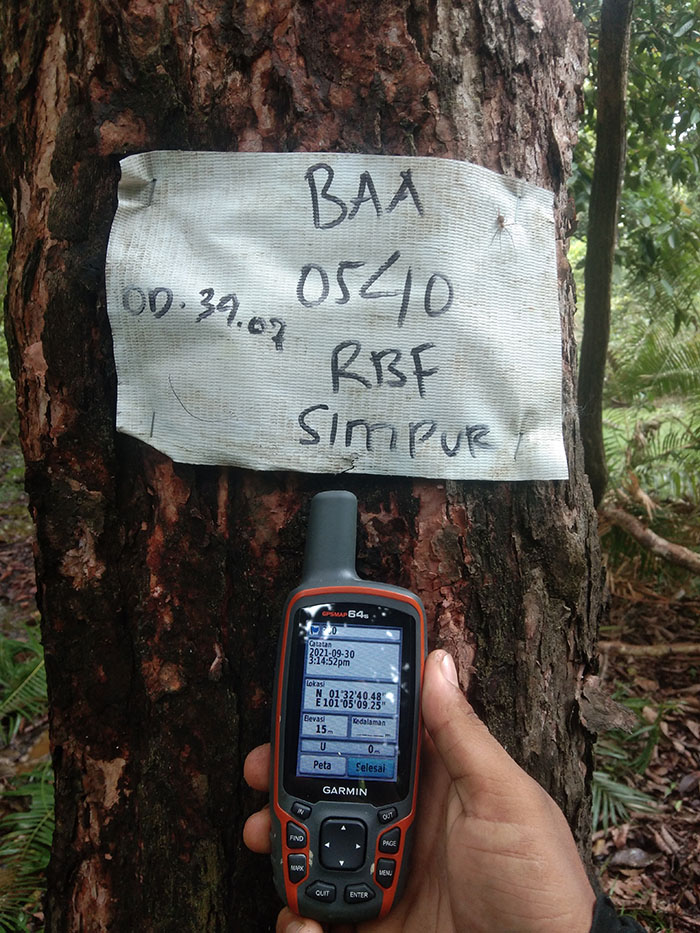 BAA
0540
OD. 39.07
RBF
SIMPUR
GPSMAP 64s
Catatan
2021-09-30
3:14:52pm
Lokasi
N 01°32'40.48"
E 101°05'09.25"
Elevasi
Kedalaman
15m
U
0m
Peta
Selesai
GARMIN
IN
OUT
FIND
PAGE
MARK
MENU
QUIT
ENTER